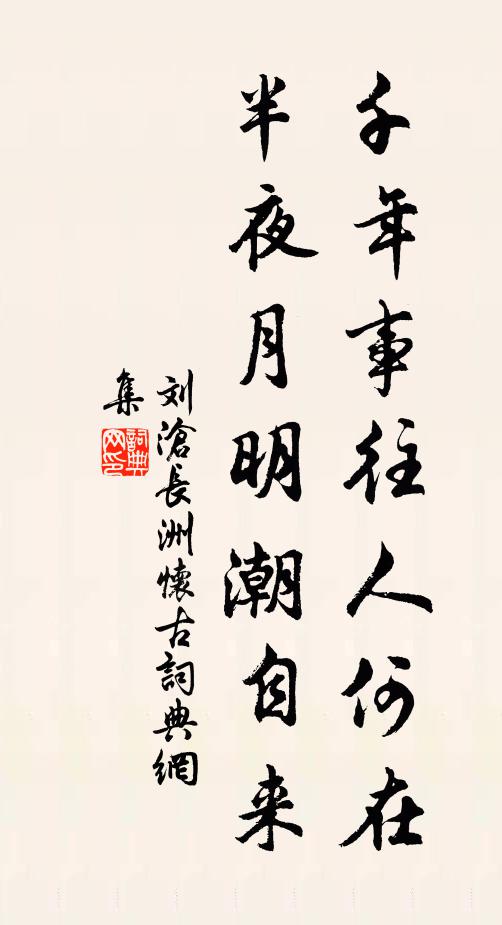 千年事往人何在
半夜月明潮自来
刘滄長洲懷古詞典網
集
詞典网印